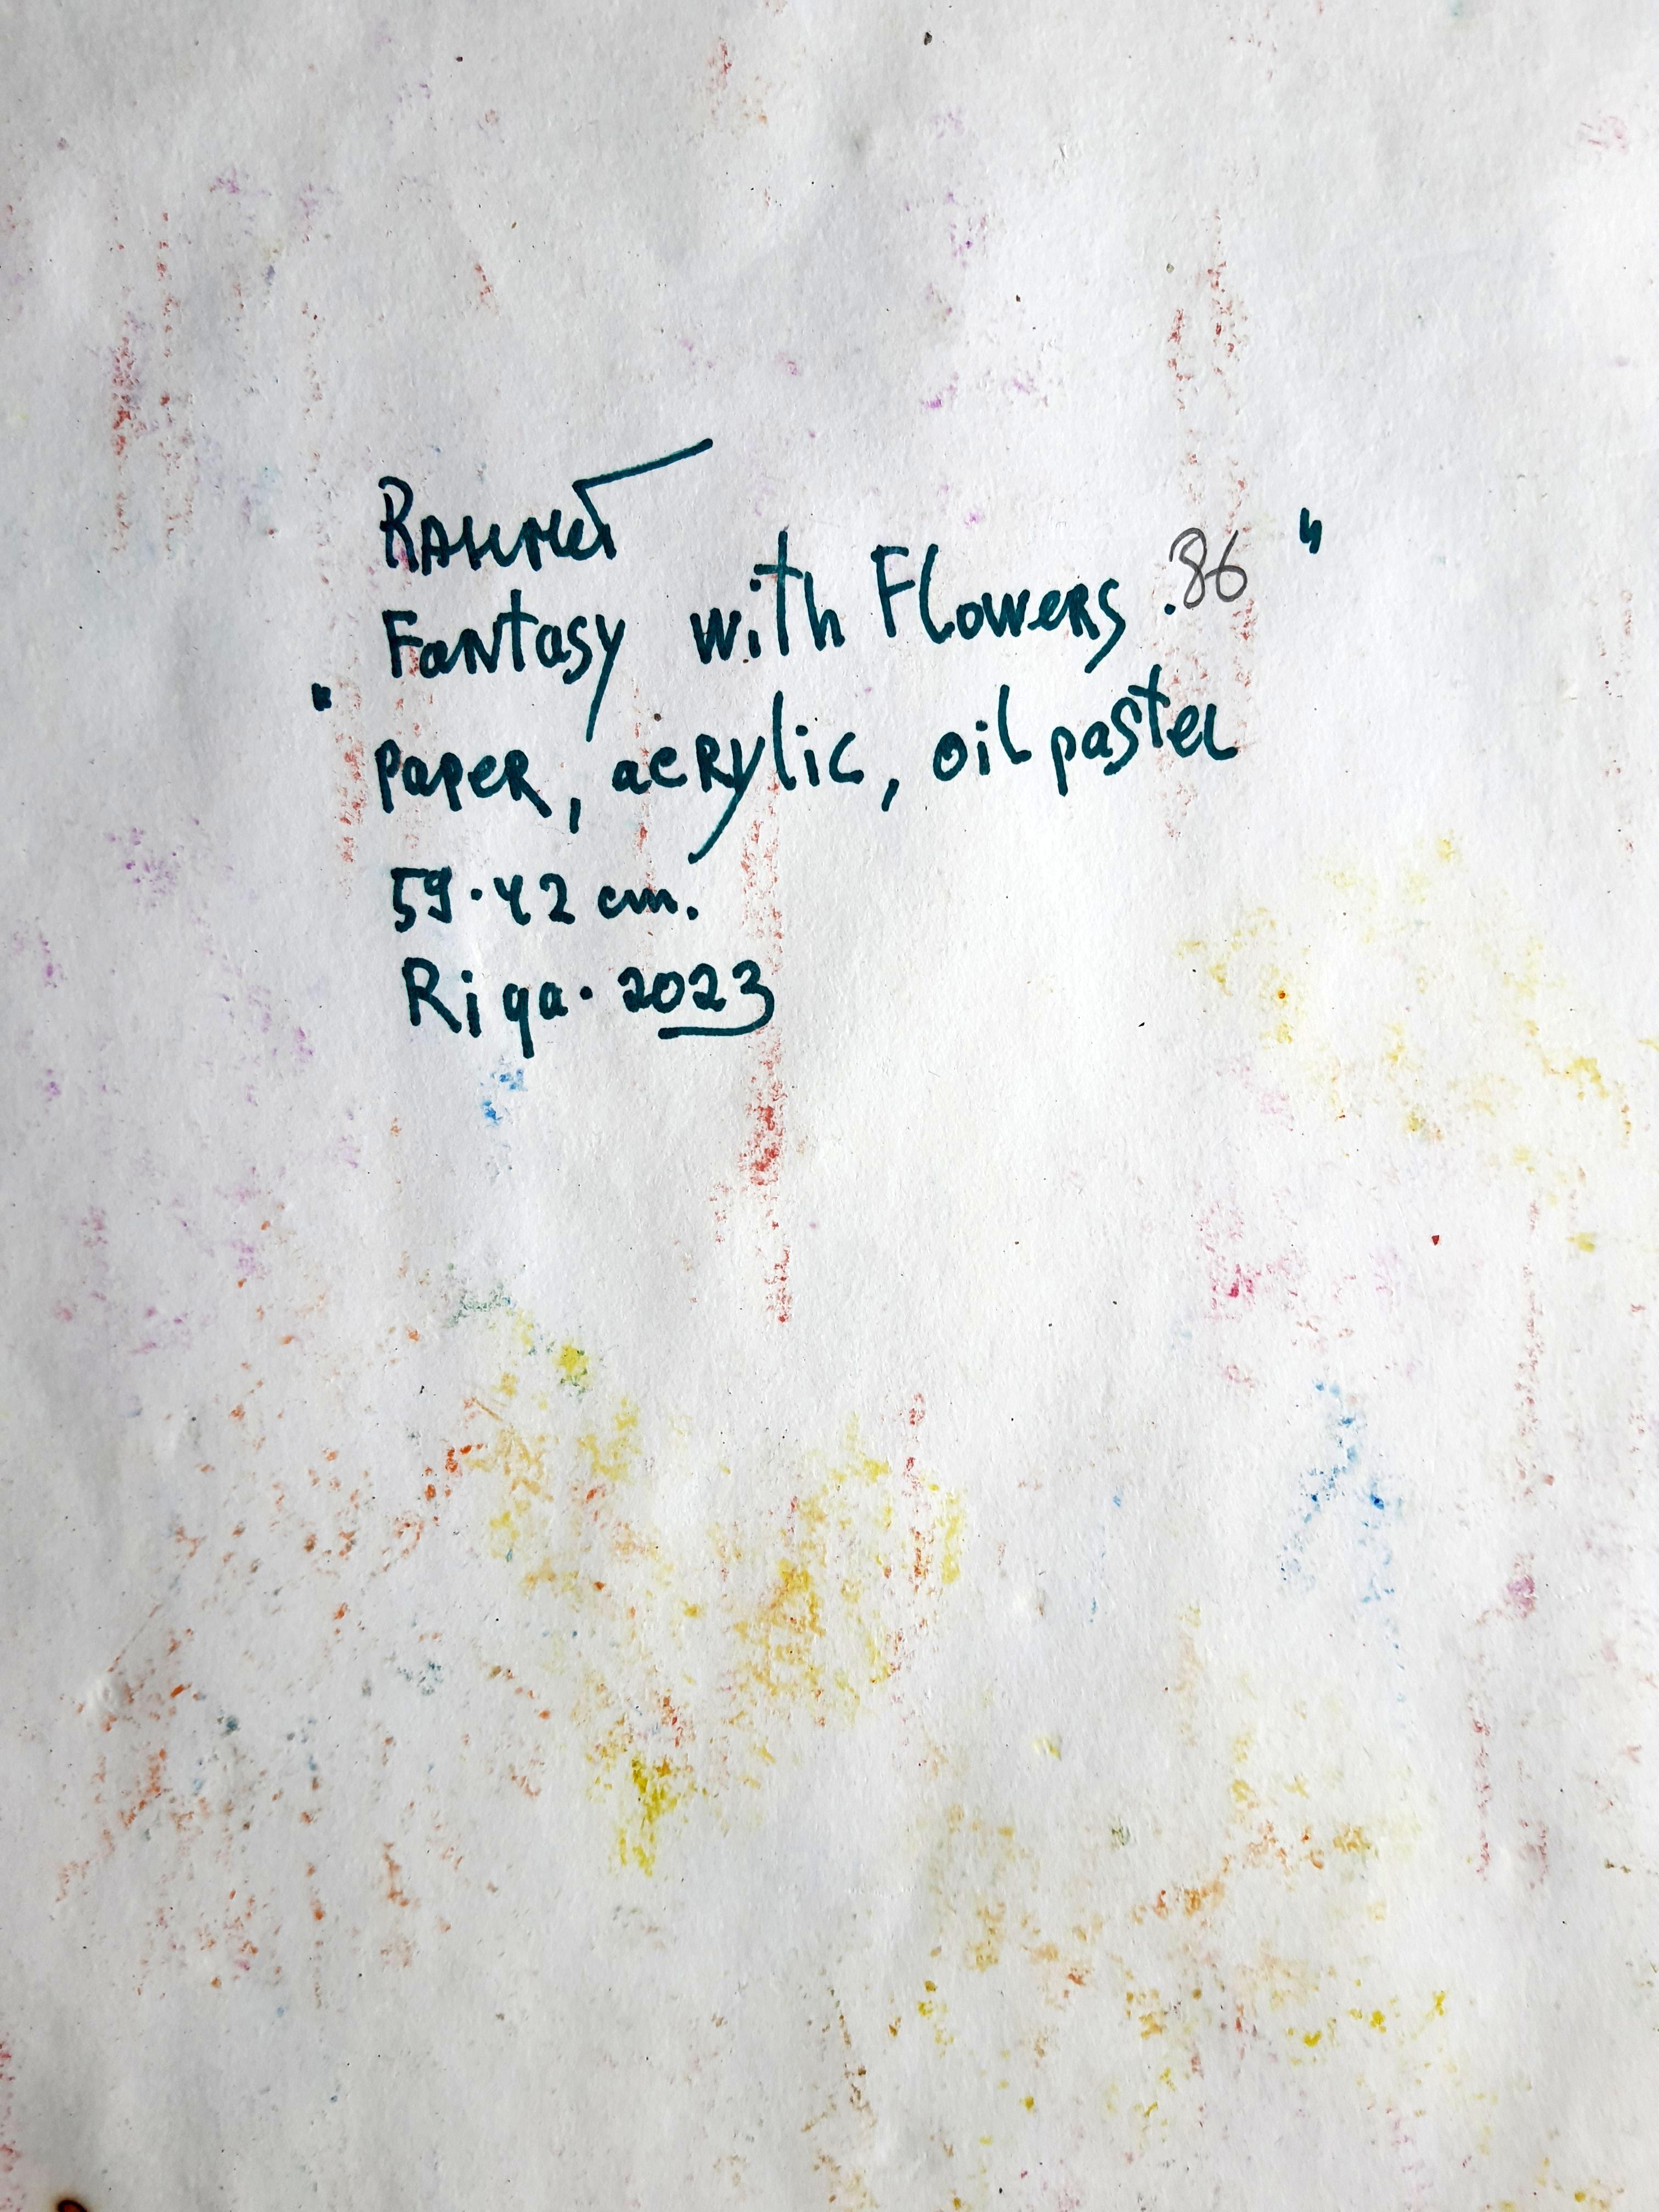 Fantasy with Flowers .86 "
" paper, acrylic, oil pastel
59·42 cm.
Riga· 2023